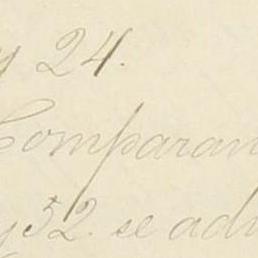 y 24.
Comparan
y 52. se adv